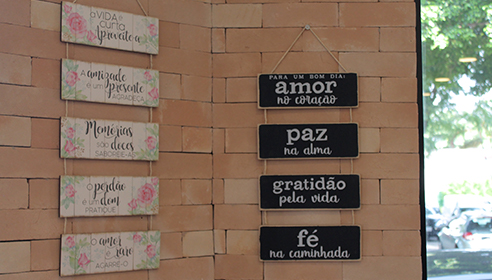 A VIDA é
curta
Aproveite-a
A amizade
é um presente
AGRADEÇA
Memórias
são doces
SABOREIE-AS
O perdão
é um dom
PRATIQUE
O amor
é raro
AGARRE-O
PARA UM BOM DIA:
amor
no coração
paz
na alma
gratidão
pela vida
fé
na caminhada